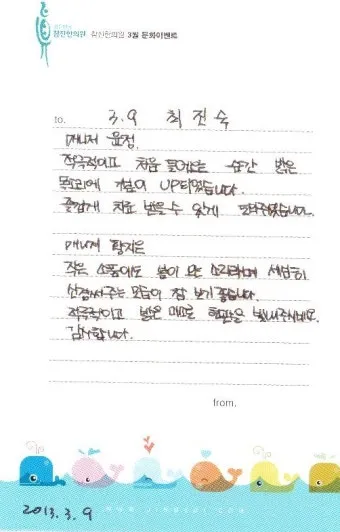 참진한의원 참진한의원 3월 문화이벤트
to. 3.9 최진숙
매니저 윤정,
적극적이고 처음 들어오는 순간 밝은
목소리에 기분이 UP되었습니다.
즐겁게 치료 받을 수 있게 되어졌습니다.
매니저 황지은
작은 소품이도 봄이 오는 소리라며 세심히
신경써주는 모습이 참 보기 좋습니다.
적극적이고 밝은 매너로 한의원을 빛내주시네요.
감사합니다.
from.
2013.3.9